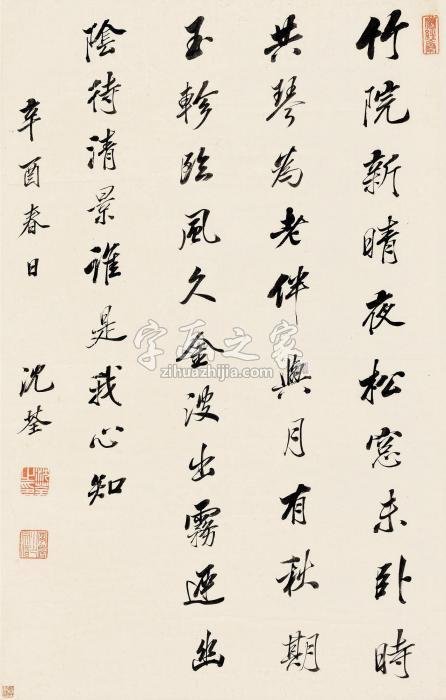 竹院新晴夜松窓未卧時
共琴為老伴與月有秋期
玉軫臨風久金波出霧遲幽
陰待清景誰是我心知
辛酉春日
沈荃
字画之家
zihuazhijia.com